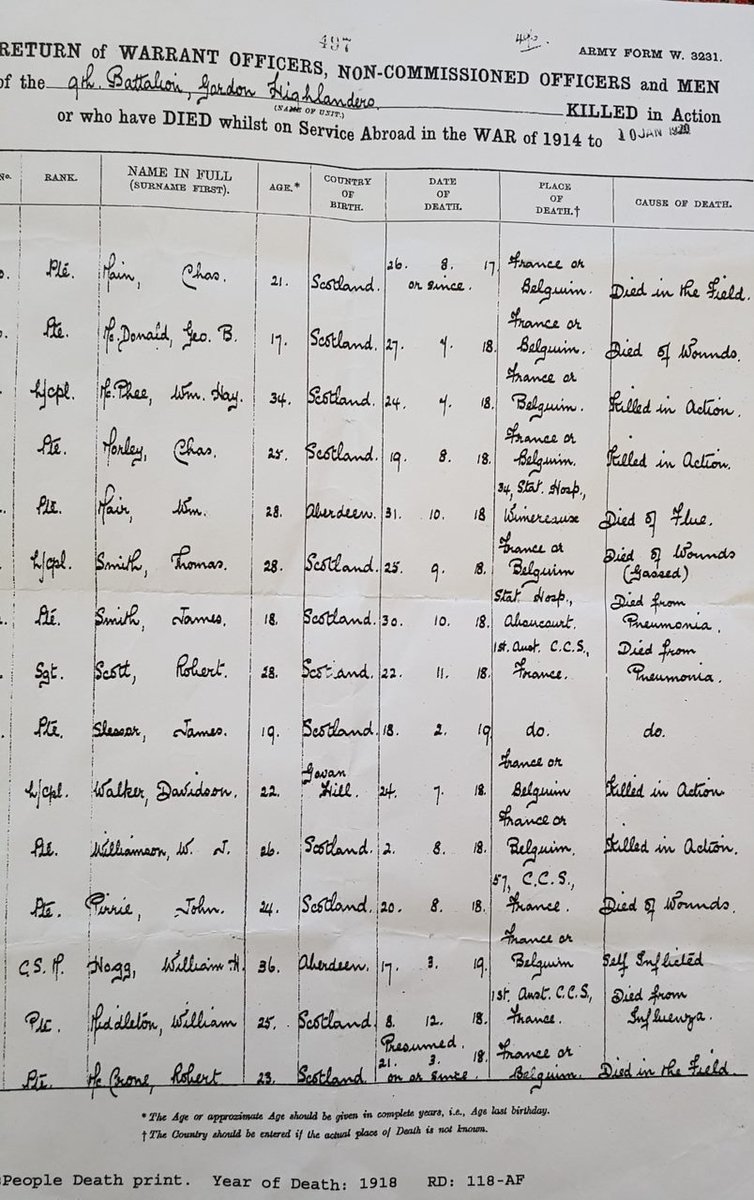 497
ARMY FORM W. 3231.
RETURN of WARRANT OFFICERS, NON-COMMISSIONED OFFICERS and MEN
of the 9th. Battalion, Gordon Highlanders. KILLED in Action
(NAME OF UNIT.)
or who have DIED whilst on Service Abroad in the WAR of 1914 to 10 JAN 1920
No. RANK. NAME IN FULL (SURNAME FIRST). AGE.* COUNTRY OF BIRTH. DATE OF DEATH. PLACE OF DEATH.† CAUSE OF DEATH.
Pte. Main, Chas. 21. Scotland. 26. 8. 17. or since. France or Belguim. Died in the Field.
Pte. McDonald, Geo. B. 17. Scotland. 27. 7. 18. France or Belguim. Died of Wounds.
L/cpl. McPhee, Wm. Hay. 34. Scotland. 24. 7. 18. France or Belguim. Killed in Action.
Pte. Morley, Chas. 25. Scotland. 19. 8. 18. France or Belguim. Killed in Action.
Pte. Mair, Wm. 28. Aberdeen. 31. 10. 18 34, Stat. Hosp., Wimereaux Died of Flue.
L/cpl. Smith, Thomas. 28. Scotland. 25. 9. 18. France or Belguim Died of Wounds (Gassed)
Pte. Smith, James. 18. Scotland. 30. 10. 18. Stat Hosp., Abancourt. Died from Pneumonia.
Sgt. Scott, Robert. 28. Scotland. 22. 11. 18. 1st. Aust. C.C.S., France. Died from Pneumonia.
Pte. Slessor, James. 19. Scotland. 18. 2. 19 do. do.
L/cpl. Walker, Davidson. 22. Govan Hill. 24. 7. 18. France or Belguim Killed in Action
Pte. Williamson, W. J. 26. Scotland. 2. 8. 18. France or Belguim. Killed in Action.
Pte. Pirrie, John. 24. Scotland. 20. 8. 18. 57, C.C.S., France. Died of Wounds.
C.S.M. Hogg, William H. 36. Aberdeen. 17. 3. 19. France or Belguim Self Inflicted
Pte. Middleton, William 25. Scotland. 8. 12. 18. 1st. Aust. C.C.S., France. Died from Influenza.
Pte. McCrone, Robert 23. Scotland. Presumed. 21. 3. 18. on or since. France or Belguim. Died in the Field.
* The Age or approximate Age should be given in complete years, i.e., Age last birthday.
† The Country should be entered if the actual place of Death is not known.
People Death print. Year of Death: 1918 RD: 118-AF